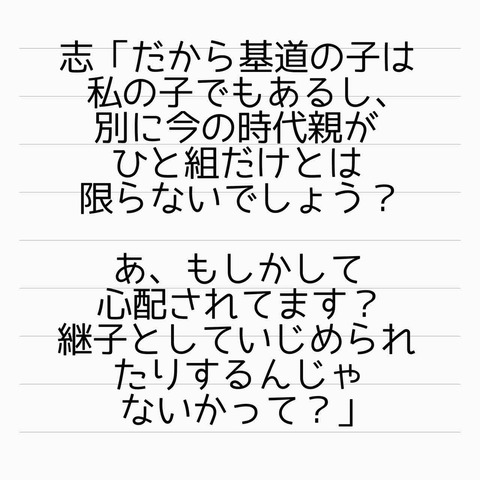 志「だから基道の子は
私の子でもあるし、
別に今の時代親が
ひと組だけとは
限らないでしょう？
あ、もしかして
心配されてます？
継子としていじめられ
たりするんじゃ
ないかって？」